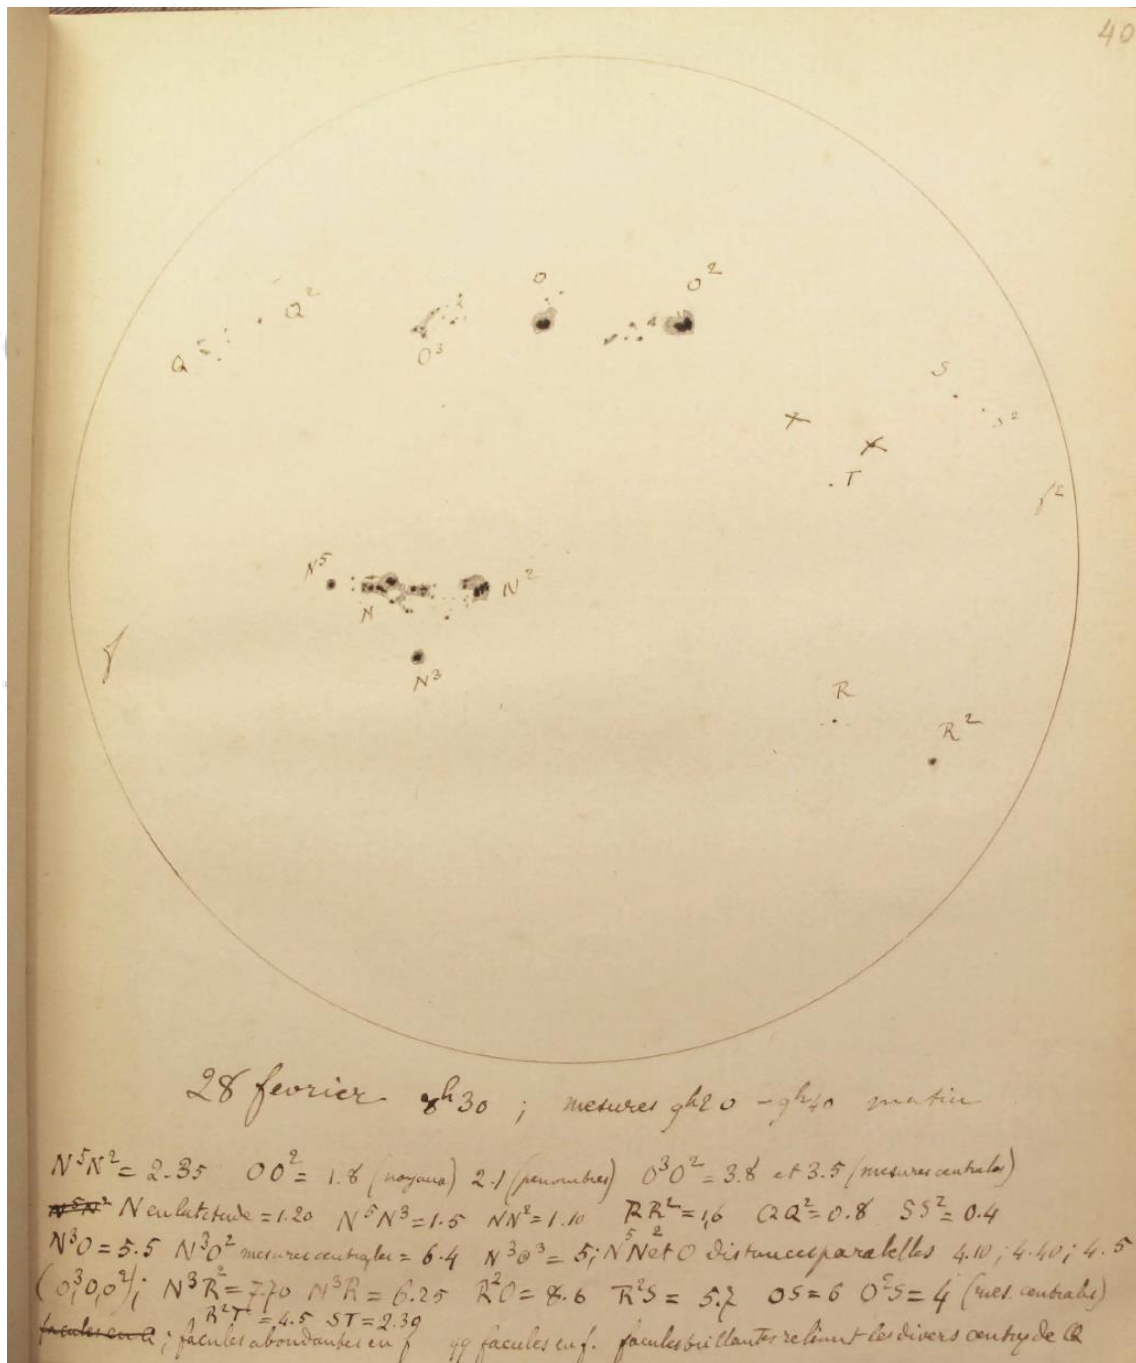 40
O
O²
Q²
O³
Q
S
S²
T
f²
N⁵
N²
N
f
N³
R
R²
28 fevrier 8h30 ; mesures 9h20 - 9h40 matin
N⁵N² = 2.35 OO² = 1.8 (noyaux) 2.1 (penombres) O³O² = 3.8 et 3.5 (mesures centrales)
N⁵N² N en latitude = 1.20 N⁵N³ = 1.5 NN² = 1.10 RR² = 1,6 QQ² = 0.8 SS² = 0.4
N³O = 5.5 N³O² mesures centrales = 6.4 N³O³ = 5; N⁵N²et O distances paralelles 4.10; 4.40; 4.5
(O³,O,O²); N³R² = 7.70 N³R = 6.25 R²O = 8.6 R²S = 5.7 OS = 6 O²S = 4 (mes. centrales)
R²T = 4.5 ST = 2.39
facules en Q ; facules abondantes en f qq facules en f. facules brillantes reliant les divers centres de Q